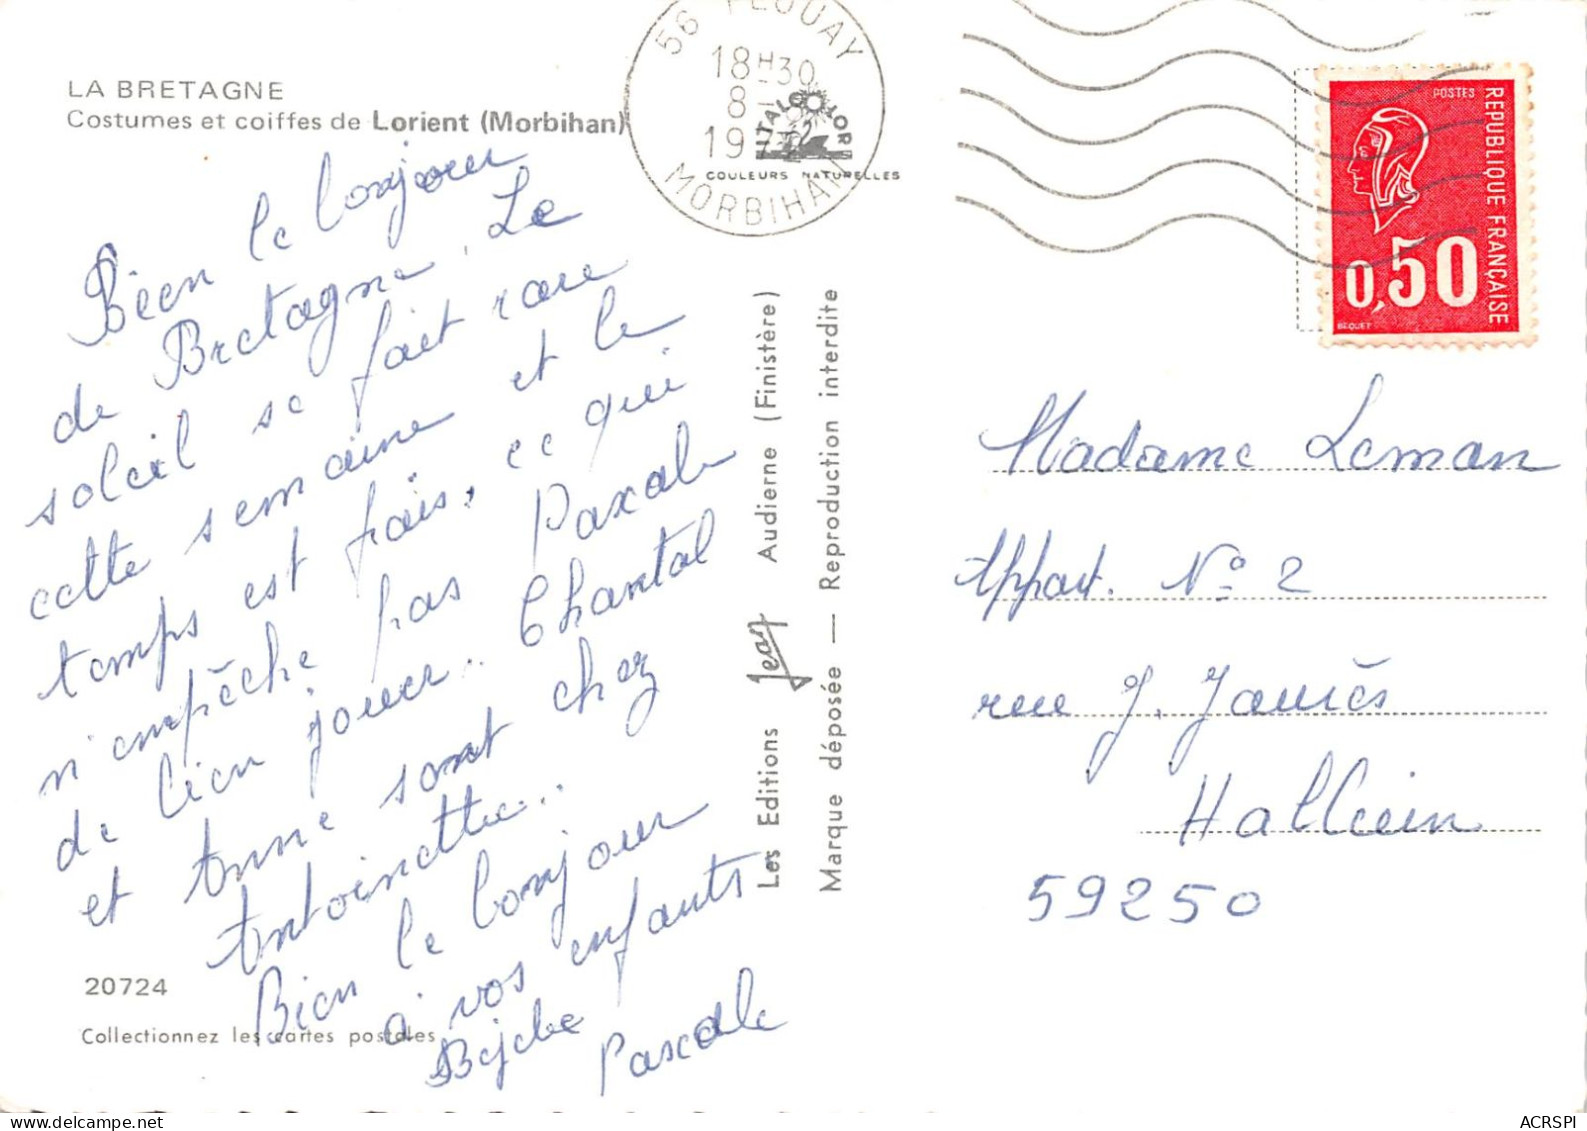 LA BRETAGNE
Costumes et coiffes de Lorient (Morbihan)
Bien le bonjour
de Bretagne. Le
soleil se fait rare
cette semaine et le
temps est frais. ce qui
n'empêche pas Pascale
de bien jouer.. Chantal
et Anne sont chez
Antoinette..
Bien le bonjour
à vos enfants
Pascale
20724
Collectionnez les cartes postales
56 PLOUAY
18H30
8-
19
MORBIHAN
ITALCOLOR
COULEURS NATURELLES
Les Editions Jean Audierne (Finistère)
Marque déposée — Reproduction interdite
POSTES
REPUBLIQUE FRANÇAISE
0,50
BEQUET
Madame Leman
Appart. No 2
rue J. Jaurès
Halluin
59250
ACRSPI